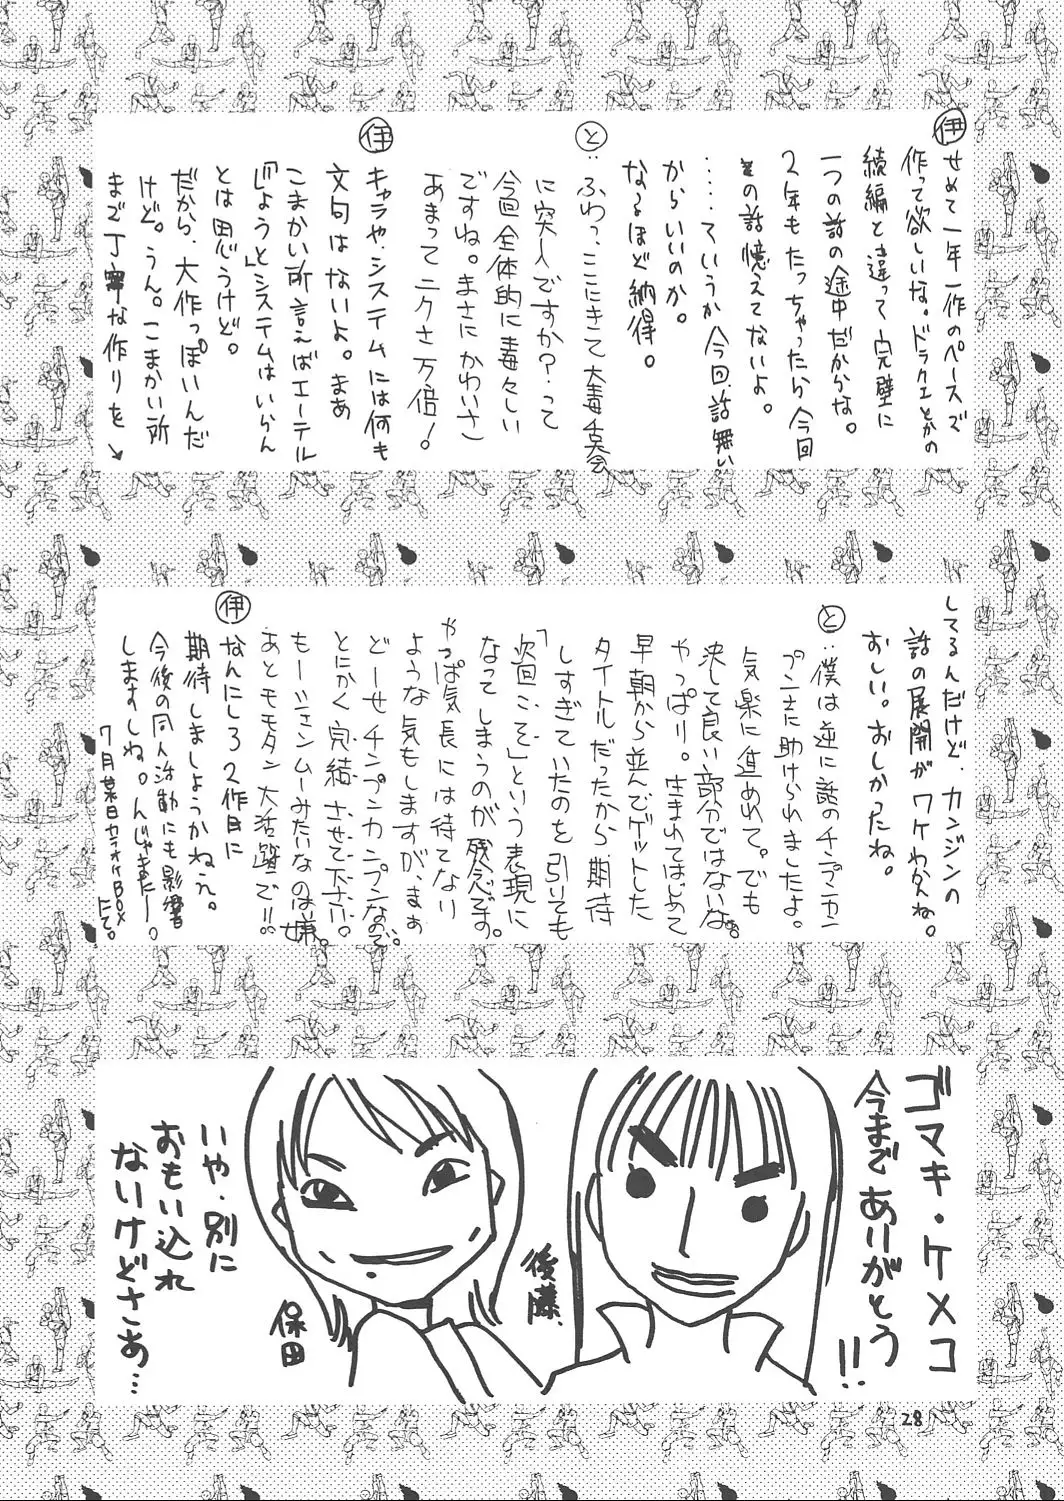 伊
せめて一年一作のペースで
作って欲しいな。ドラクエとかの
続編と違って完璧に
一つの話の途中だからな。
2年もたっちゃったら今回
の話憶えてないよ。
‥‥ていうか今回、話無い
からいいのか。
なるほど納得。
と
‥ふわっ、ここにきて大毒舌大会
に突入ですか？って
今回全体的に毒々しい
ですね。まさにかわいさ
あまってニクさ万倍！
伊
キャラや、システムには何も
文句はないよ。まぁ
こまかい所言えばエーテル
「しょうと」システムはいらん
とは思うけど。
だから、大作っぽいんだ
けど。うん。こまかい所
まで丁寧な作りを↘
してるんだけど、カンジンの
話の展開がワケわかんね。
おしい。おしかったね。
と
‥僕は逆に話のチンプンカン
プンさに助けられましたよ。
気楽に進めれて。でも
決して良い部分ではないな。
やっぱり。生まれてはじめて
早朝から並んでゲットした
タイトルだったから期待
しすぎていたのを引いても
「次回こそ」という表現に
なってしまうのが残念です。
やっぱ気長には待てなり
ような気もしますが、まぁ
どーせチンプンカンプンなので。
とにかく完結させて下さい。
もーシェンムーみたいなのは嫌。
あとモモタン大活躍で!!
伊
なんにしろ2作目に
期待しましょうかねえ。
今後の同人活動にも影響
しますしね。んじゃまたー。
7月某日カラオケBOX
にて。
ゴマキ・ケメコ
今までありがとう!!
後藤
保田
いや、別に
おもい込れ
ないけどさぁ…
28